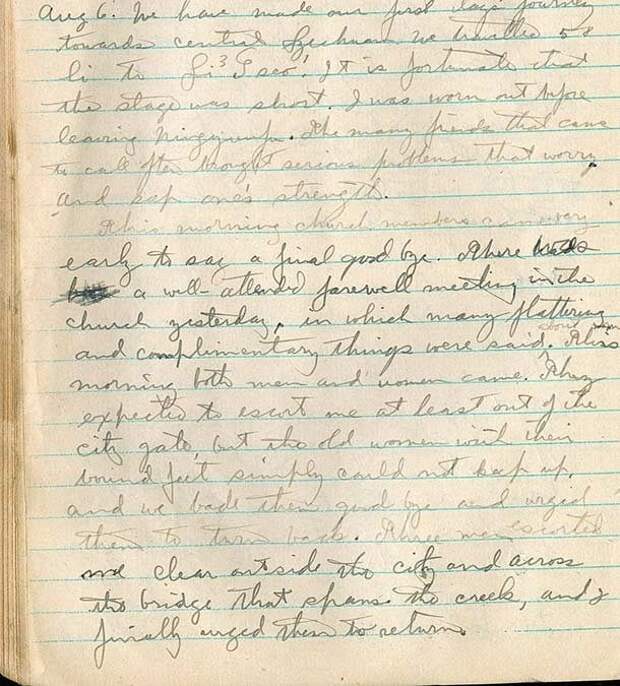 Aug 6. We have made our first days journey
towards central Szechuan. We travelled 58
li to Li³ Tseo¹. It is fortunate that
the stage was short. I was worn out before
leaving Ningyuenfu. The many friends that came
to call often brought serious problems that worry
and sap one's strength.
This morning church members came very
early to say a final good bye. There was
a well-attended farewell meeting in the
church yesterday, in which many flattering
and complimentary things were said. This
morning both men and women came. They
expected to escort me at least out of the
city gate, but the old women with their
bound feet simply could not keep up,
and we bade them good bye and urged
them to turn back. Three men escorted
me clear outside the city and across
the bridge that spans the creek, and I
finally urged them to return.